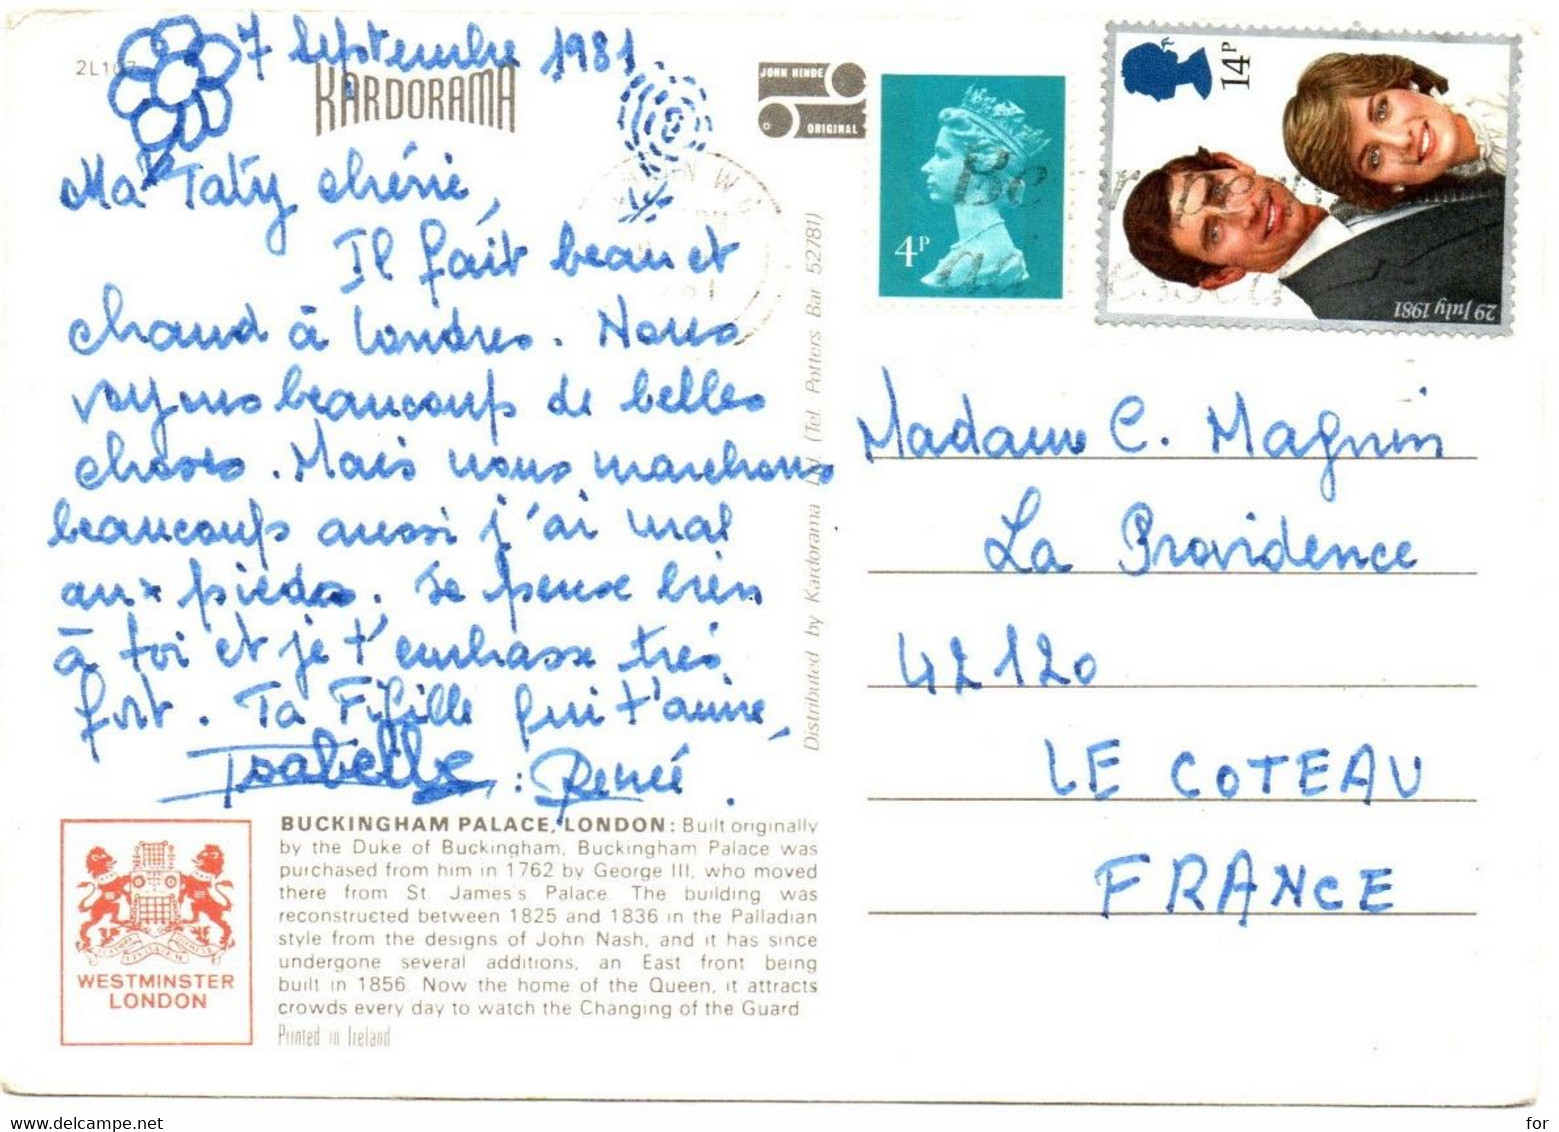 2L107
7 Septembre 1981.
KARDORAMA
JOHN HINDE
ORIGINAL
Ma Taty chérie,
Il fait beau et
chaud à Londres. Nous
voyons beaucoup de belles
choses. Mais nous marchons
beaucoup aussi j'ai mal
aux pieds. Je pense bien
à toi et je t'embrasse très
fort. Ta Fifille qui t'aime,
Isabelle : Renée.
BUCKINGHAM PALACE, LONDON: Built originally
by the Duke of Buckingham, Buckingham Palace was
purchased from him in 1762 by George III, who moved
there from St. James's Palace. The building was
reconstructed between 1825 and 1836 in the Palladian
style from the designs of John Nash, and it has since
undergone several additions, an East front being
built in 1856. Now the home of the Queen, it attracts
crowds every day to watch the Changing of the Guard
Printed in Ireland
WESTMINSTER
LONDON
Distributed by Kardorama Ltd. (Tel. Potters Bar 52781)
4P
14P
29 July 1981
Be
Madame C. Magnin
La Providence
42120
LE COTEAU
FRANCE
for